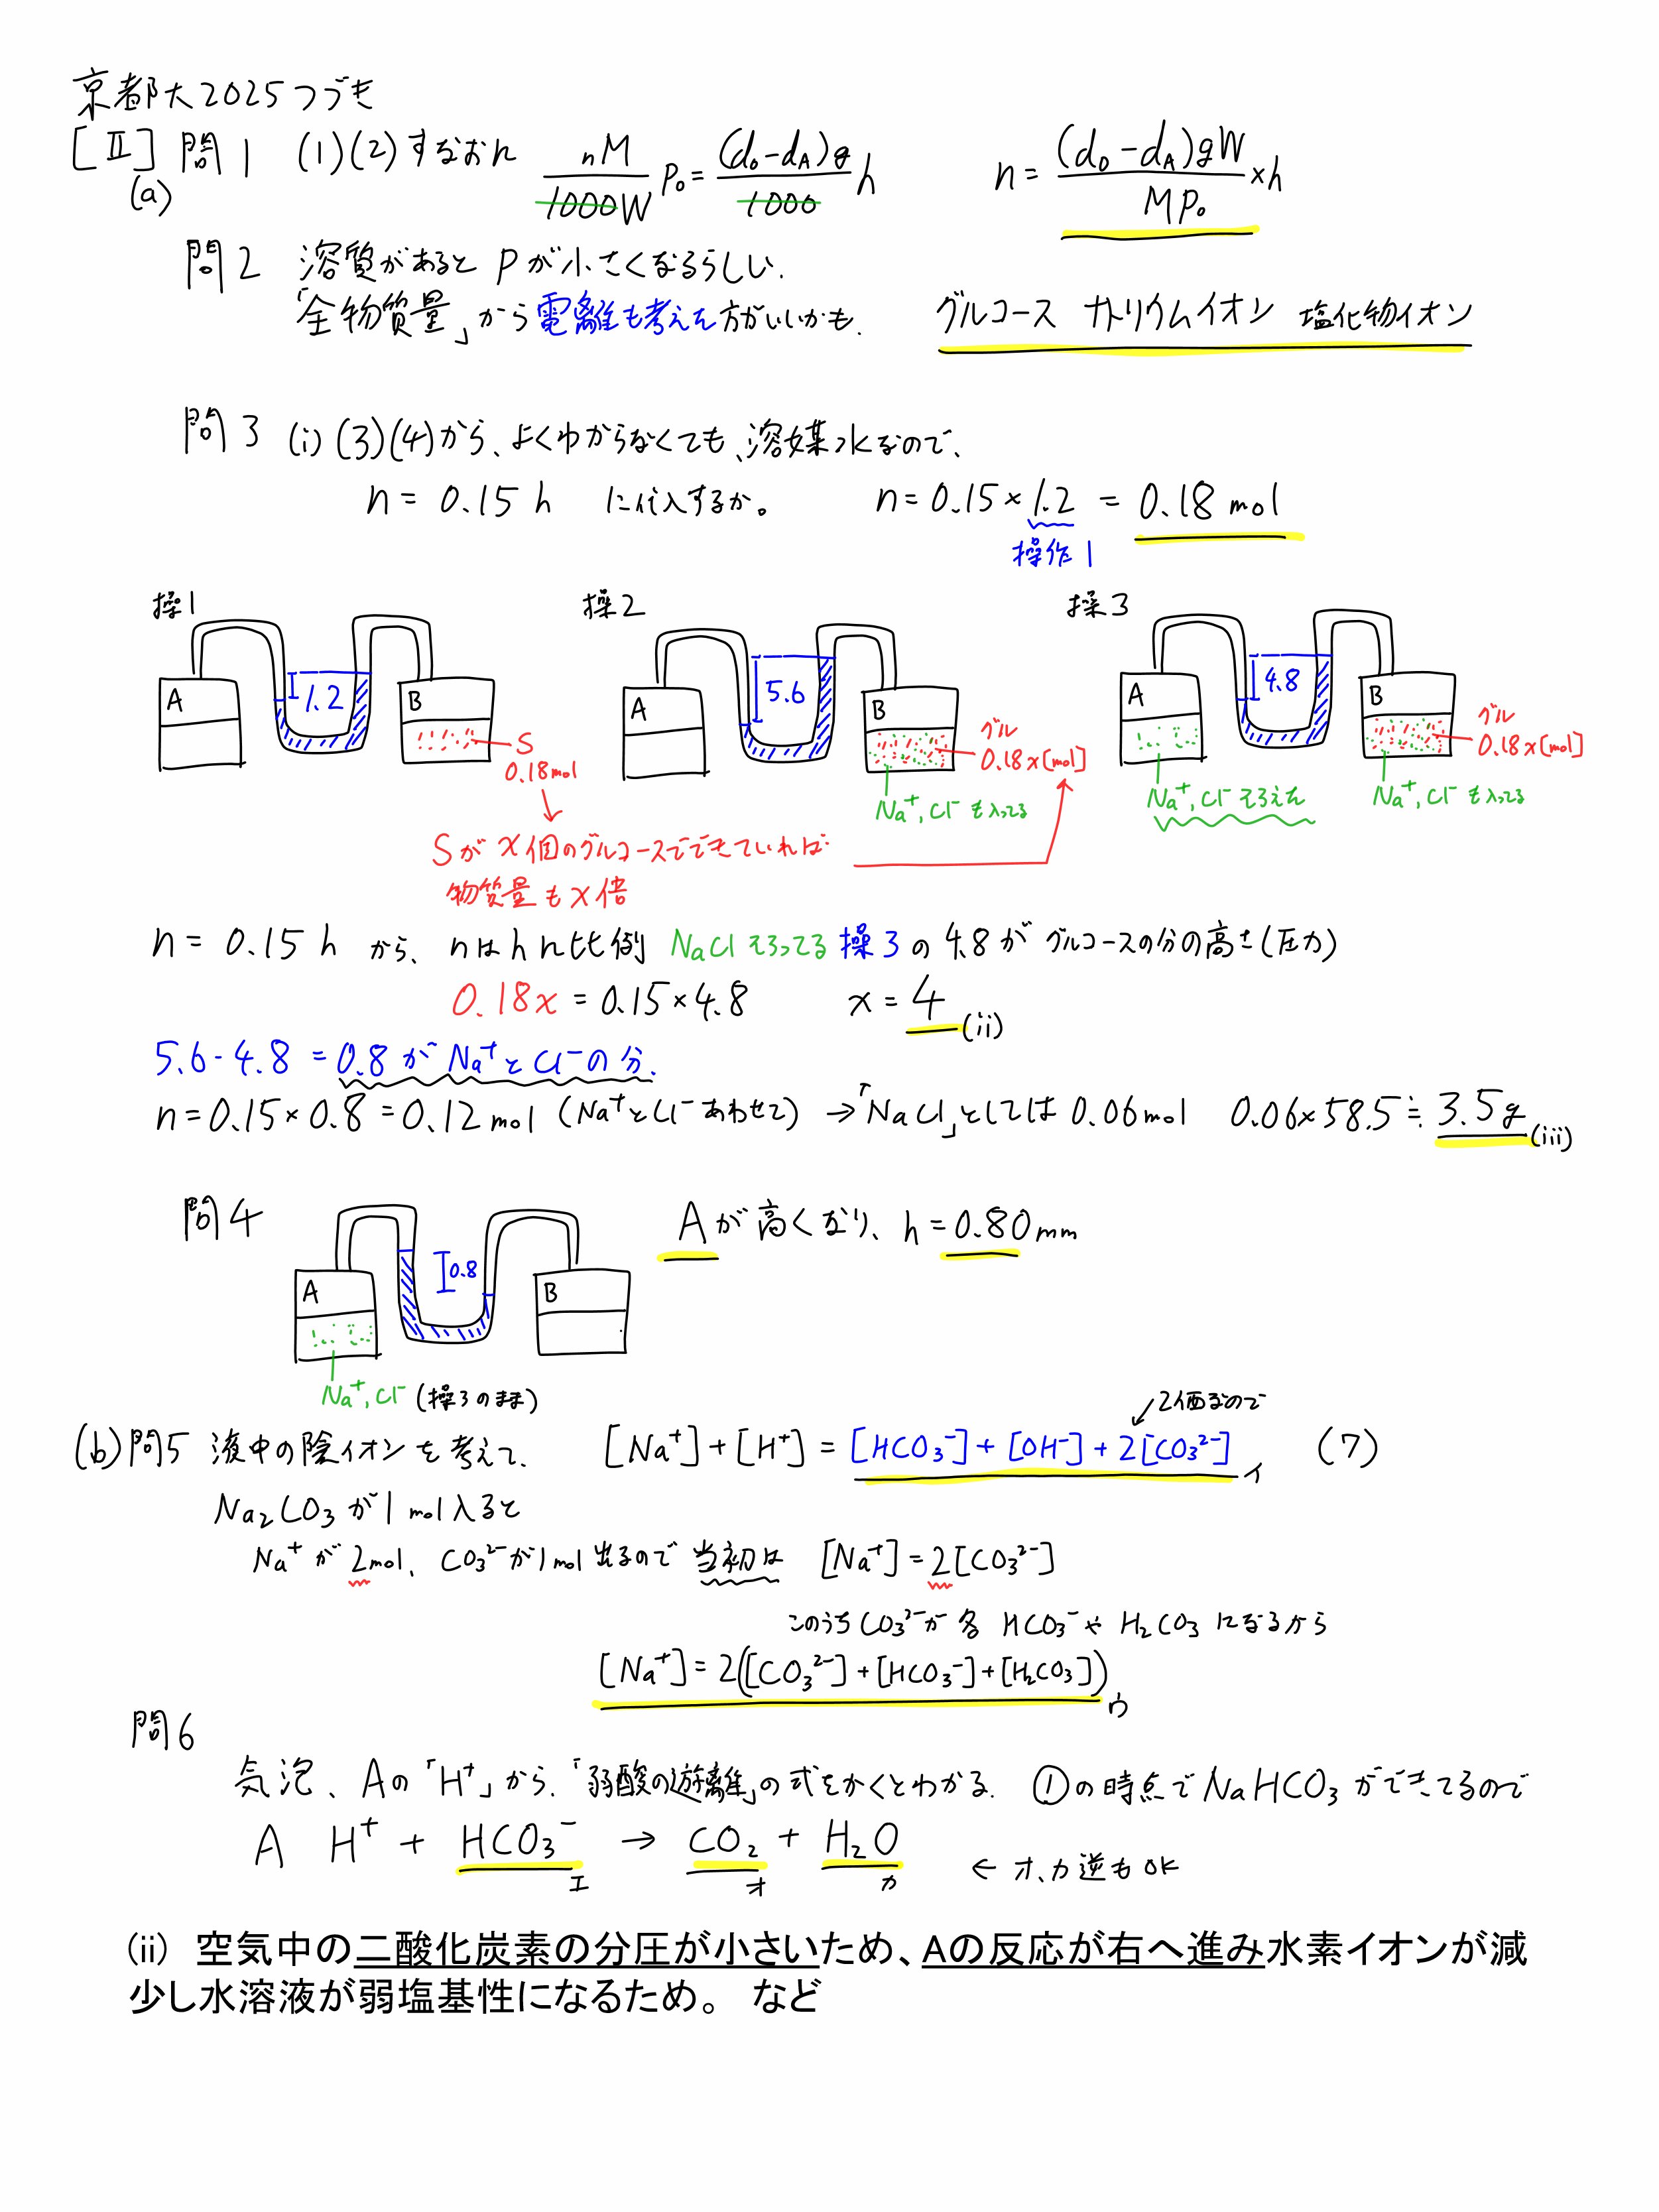 京都大2025つづき
[Ⅱ] 問1 (1)(2)すなおに nM/1000W P₀ = (d₀-dA)g/1000 h n = (d₀-dA)gW/MP₀ × h
(a)
問2 溶質があると Pが小さくなるらしい.
「全物質量」から電離も考えた方がいいかも. グルコース ナトリウムイオン 塩化物イオン
問3 (i) (3)(4)から、よくわからなくても、溶媒水なので、
n = 0.15 h に代入するか。 n = 0.15 × 1.2 = 0.18 mol
操作1
操1 操2 操3
A 1.2 B A 5.6 B A 4.8 B
S 0.18mol
グル 0.18x[mol]
グル 0.18x[mol]
Na⁺, Cl⁻も入ってる Na⁺, Cl⁻そろえた Na⁺, Cl⁻も入ってる
Sがx個のグルコースでできていれば
物質量もx倍
n = 0.15 h から、nはhに比例 NaClそろってる操3の4.8がグルコースの分の高さ(圧力)
0.18x = 0.15×4.8 x = 4 (ii)
5.6-4.8 = 0.8がNa⁺とCl⁻の分.
n = 0.15×0.8 = 0.12 mol (Na⁺とCl⁻あわせて) →「NaCl」としては0.06mol 0.06×58.5≒3.5g (iii)
問4 Aが高くなり、h = 0.80mm
A 0.8 B
Na⁺, Cl⁻ (操3のまま)
2価なので
(b)問5 液中の陰イオンを考えて. [Na⁺]+[H⁺] = [HCO₃⁻]+[OH⁻]+2[CO₃²⁻] イ (7)
Na₂CO₃が1mol入ると
Na⁺が2mol、CO₃²⁻が1mol出るので当初は [Na⁺] = 2[CO₃²⁻]
このうちCO₃²⁻が各HCO₃⁻やH₂CO₃になるから
[Na⁺] = 2([CO₃²⁻]+[HCO₃⁻]+[H₂CO₃]) ウ
問6
気泡、Aの「H⁺」から.「弱酸の遊離」の式をかくとわかる. ①の時点でNaHCO₃ができてるので
A H⁺ + HCO₃⁻ → CO₂ + H₂O ← オ、カ逆もOK
エ オ カ
(ii) 空気中の二酸化炭素の分圧が小さいため、Aの反応が右へ進み水素イオンが減
少し水溶液が弱塩基性になるため。 など